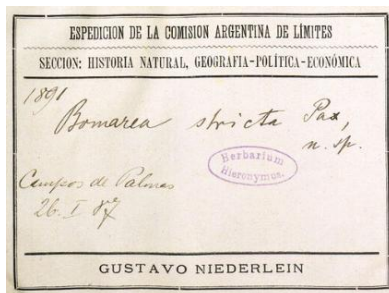 ESPEDICION DE LA COMISION ARGENTINA DE LÍMITES
SECCION: HISTORIA NATURAL, GEOGRAFIA-POLÍTICA-ECONÓMICA
1891
Bomarea stricta Pax,
n. sp.
Herbarium
Hieronymus.
Campos de Palmas
26. I 87
GUSTAVO NIEDERLEIN